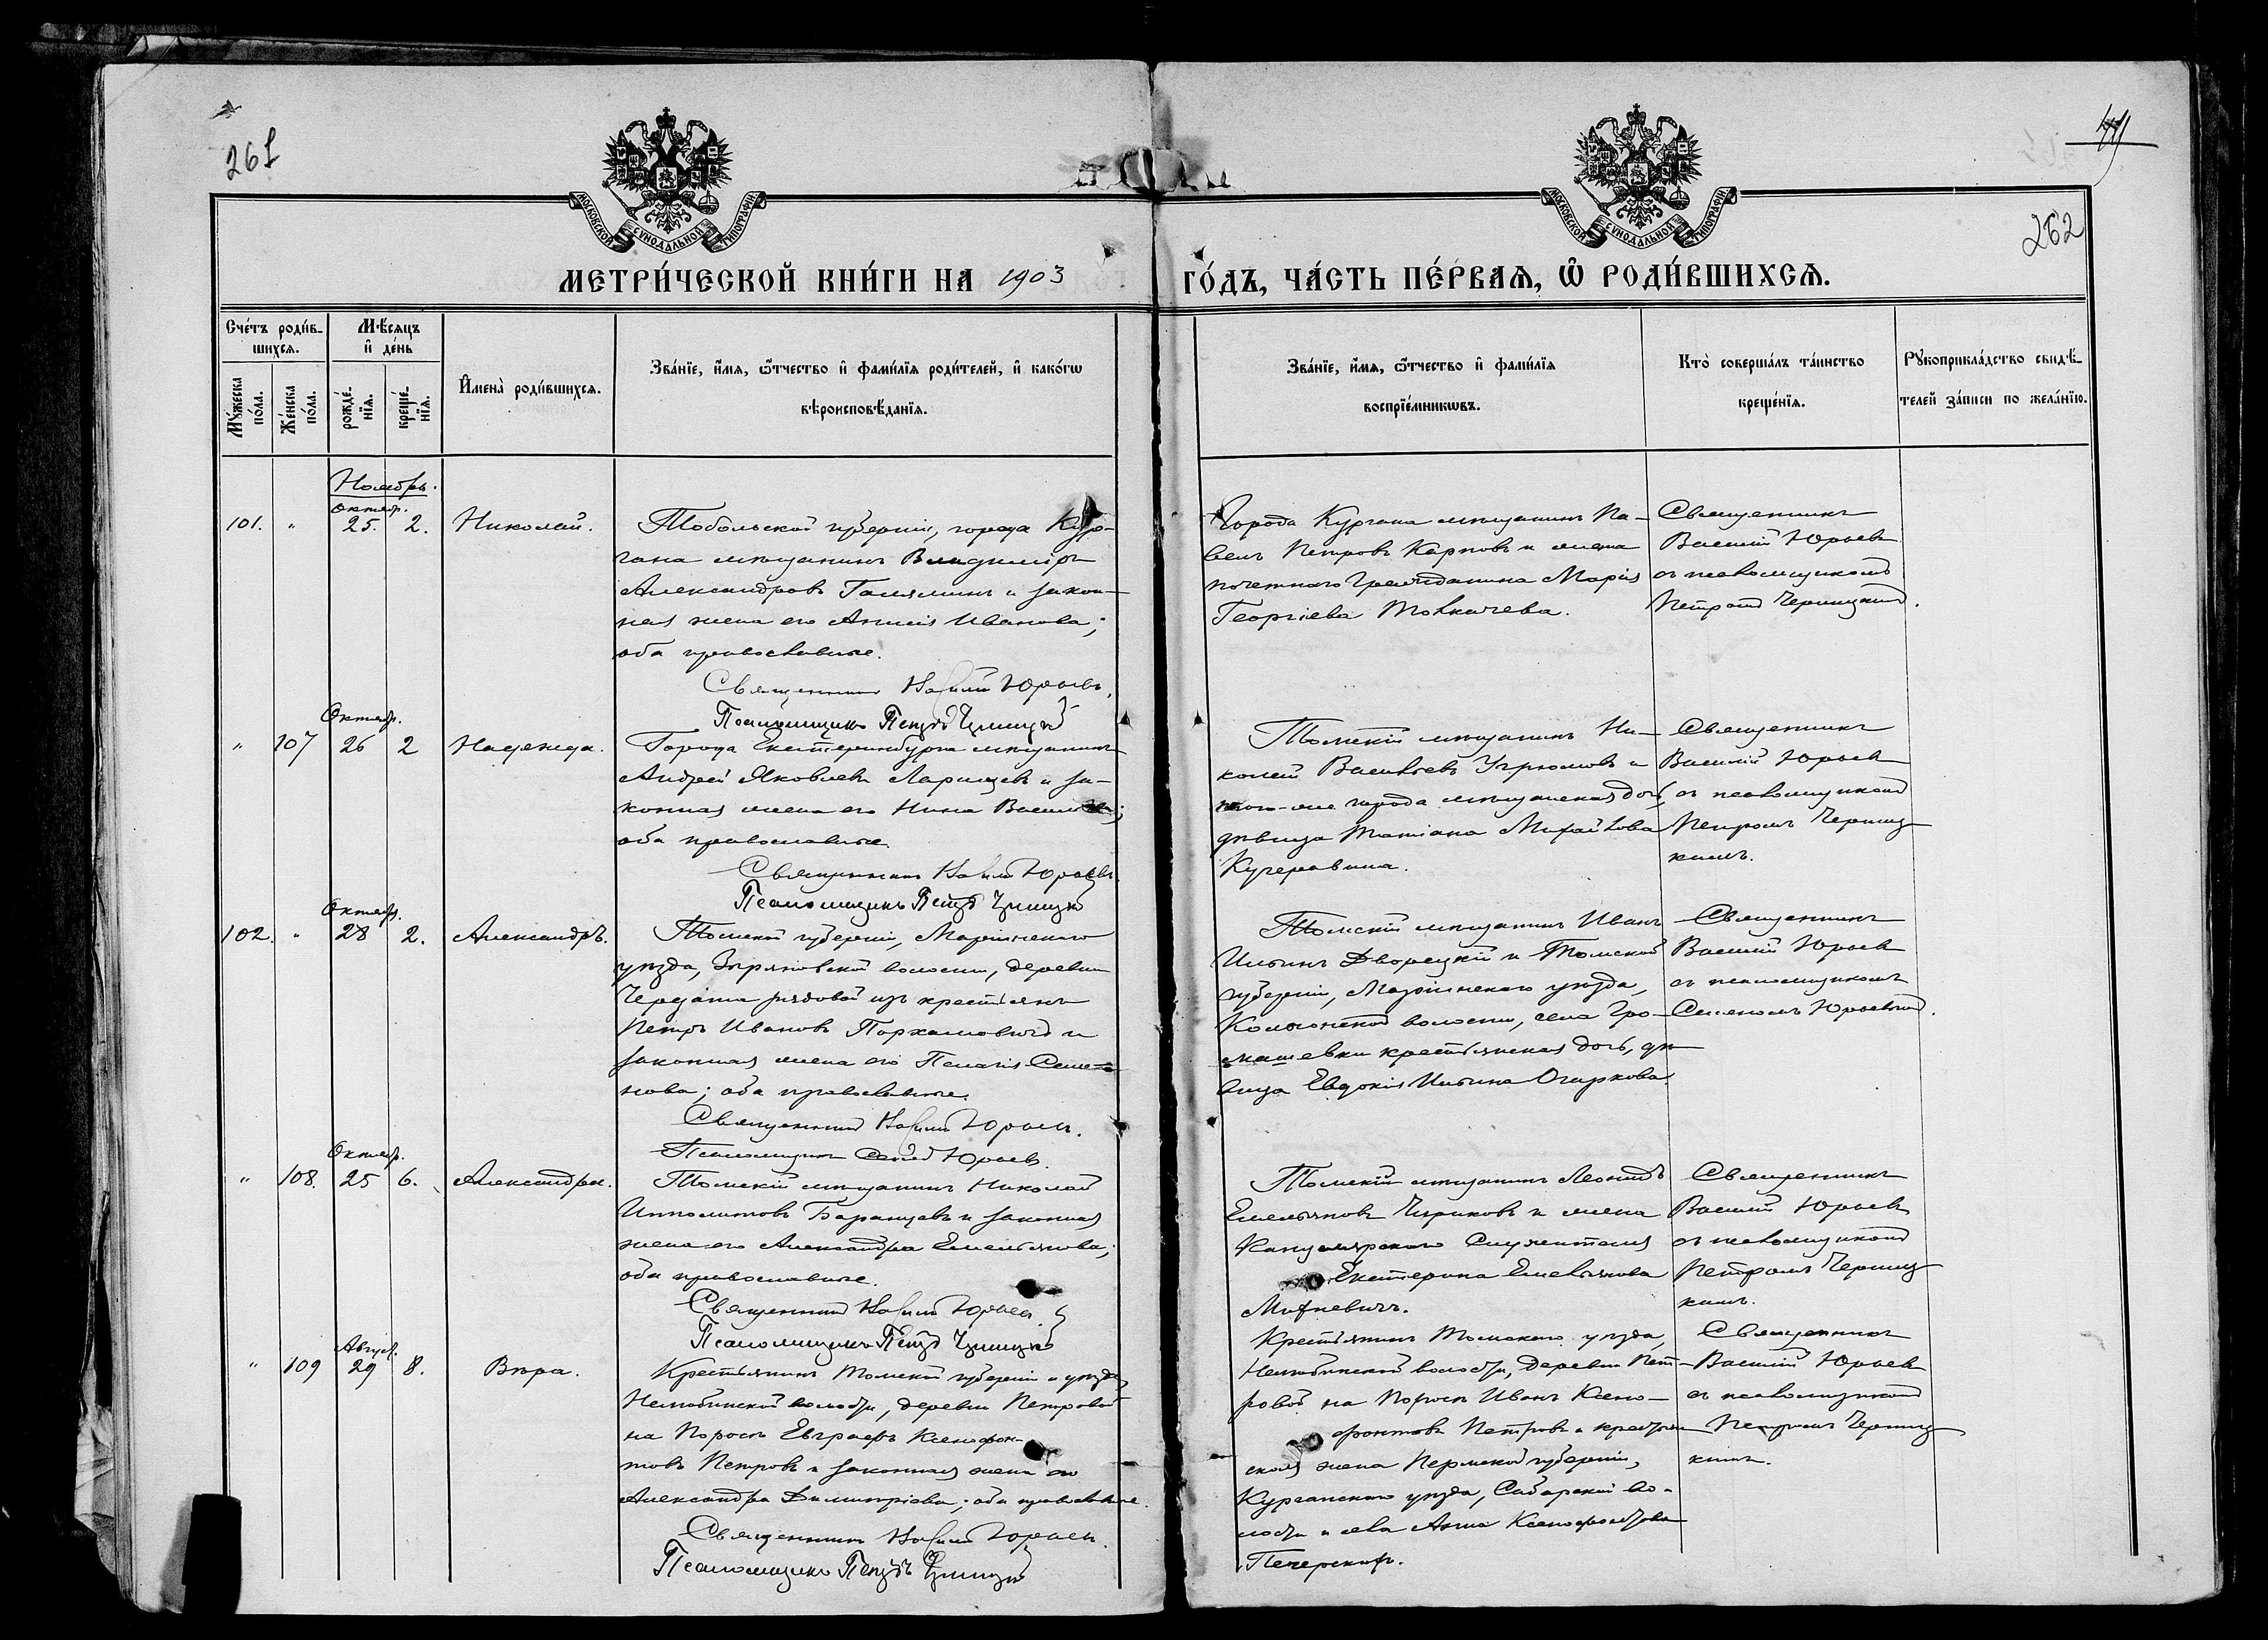 261
49
262
МОСКОВСКОЙ СѴНОДАЛЬНОЙ ТИПОГРАФІИ
МОСКОВСКОЙ СѴНОДАЛЬНОЙ ТИПОГРАФІИ
МЕТРИ́ЧЕСКОЙ КНИ́ГИ НА 1903
ГО́ДЪ, ЧА́СТЬ ПЕ́РВАѦ, Ѡ҆ РОДИ́ВШИХСѦ.
Сче́тъ роди́в-
шихсѧ.
Му́жеска по́ла.
Же́нска по́ла.
Мѣ́сѧцъ
и҆ де́нь
рожде́-
нїѧ.
креще́-
нїѧ.
И҆мена̀ роди́вшихсѧ.
Зва́нїе, и҆́мѧ, ѻ҆́тчество и҆ фами́лїѧ роди́телей, и҆ како́гѡ
вѣроисповѣ́данїѧ.
Зва́нїе, и҆́мѧ, ѻ҆́тчество и҆ фами́лїѧ
воспрїе́мникѡвъ.
Кто̀ соверша́лъ та́инство
креще́нїѧ.
Рꙋкоприкла́дство свидѣ́-
телей за́писи по жела́нїю.
Ноябрь.
Октябр.
101. " 25. 2. Николай.
Тобольской губерніи, города Кур-
гана мѣщанинъ Владиміръ
Александровъ Галяминъ и закон-
ная жена его Анисія Иванова;
оба православные.
Священникъ Василій Юрьевъ.
Псаломщикъ Петръ Черницкій
Города Кургана мѣщанинъ Па-
велъ Петровъ Карповъ и жена
почетнаго гражданина Марія
Георгіева Толкачева.
Священникъ
Василій Юрьевъ
съ псаломщикомъ
Петромъ Черницкимъ.
Октябр.
" 107 26 2 Надежда.
Города Екатеринбурга мѣщанинъ
Андрей Яковлевъ Ларищевъ и за-
конная жена его Нина Васильева;
оба православные.
Священникъ Василій Юрьевъ.
Псаломщикъ Петръ Черницкій
Томскій мѣщанинъ Ни-
колай Васильевъ Угрюмовъ и
того-же города мѣщанская дочь,
дѣвица Татіана Михайлова
Кучеравина.
Священникъ
Василій Юрьевъ
съ псаломщикомъ
Петромъ Черниц
кимъ.
Октябр.
102. " 28 2. Александръ.
Томской губерніи, Маріинскаго
уѣзда, Зыряновской волости, деревни
Чердата рядовой изъ крестьянъ
Петръ Иванов Пархамовичъ и
законная жена его Пелагія Семе-
нова; оба православные.
Священникъ Василій Юрьевъ.
Псаломщикъ Семенъ Юрьевъ.
Томскій мѣщанинъ Иванъ
Ильинъ Дворецкій и Томской
губерніи, Маріинскаго уѣзда,
Колыонской волости, села Гро-
машевки крестьянская дочь, дѣ
вица Евдокія Ильина Огаркова.
Священникъ
Василій Юрьевъ
съ псаломщикомъ
Семеномъ Юрьевымъ.
Октябр.
" 108. 25 6. Александра.
Томскій мѣщанинъ Николай
Ипполитовъ Баранцевъ и законная
жена его Александра Емельянова;
оба православные.
Священникъ Василій Юрьевъ.
Псаломщикъ Петръ Черницкій
Томскій мѣщанинъ Леонидъ
Емельяновъ Чириковъ и жена
Канцелярскаго Служителя
Екатерина Емельянова
Михневичъ.
Священникъ
Василій Юрьевъ
съ псаломщикомъ
Петромъ Черниц
кимъ.
Август.
" 109 29 8. Вѣра.
Крестьянинъ Томской губерніи и уѣзда,
Нелюбинской волости, деревни Петровой
на Поросѣ Евграфъ Ксенофон-
товъ Петровъ и законная жена его
Александра Димитріева; оба православные.
Священникъ Василій Юрьевъ.
Псаломщикъ Петръ Черницкій
Крестьянинъ Томскаго уѣзда,
Нелюбинской волости, деревни Пет-
ровой на Пороси Иванъ Ксено-
фонтовъ Петровъ и крестьян
ская жена Пермской губерніи,
Курганскаго уѣзда, во-
лости и села Анна Ксенофонтова
Священникъ
Василій Юрьевъ
съ псаломщикомъ
Петромъ Черниц
кимъ.